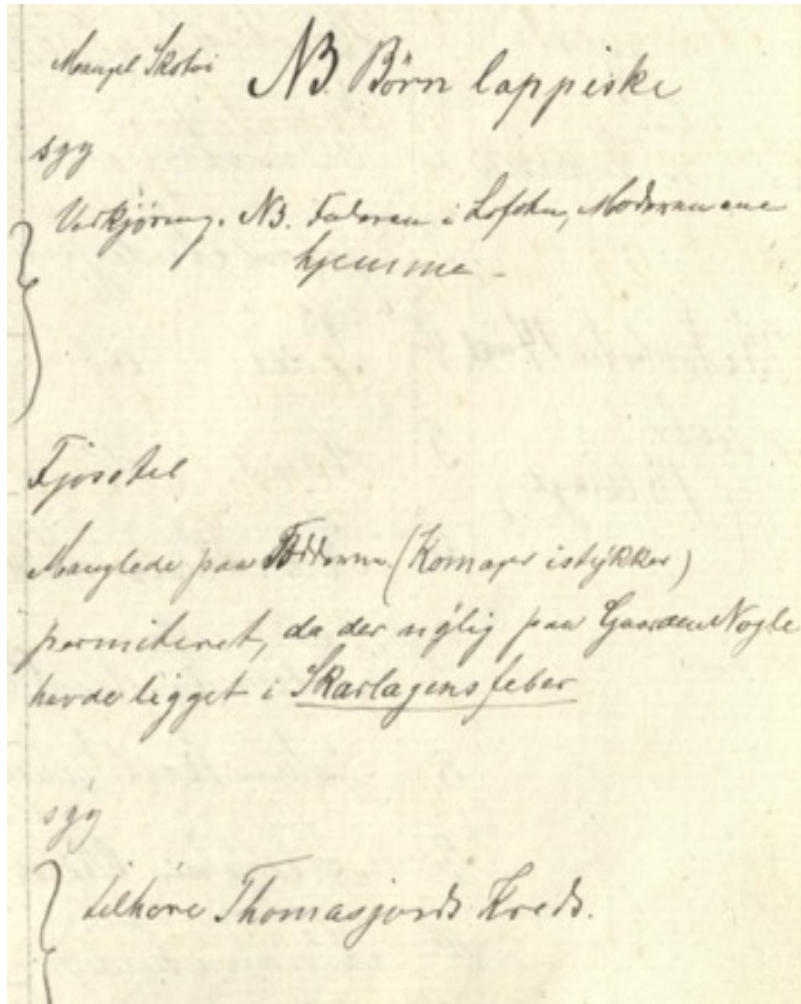 Mangel Skotøi NB. Børn lappiske
syg
Vedkjøring. NB. Faderen i Lofoten, Moderen ene
hjemme -
Fjosstel
Manglede paa Fødderne (Komager istykker)
permiteret, da der nÿlig paa Gaarden Nogle
havde ligget i Skarlagensfeber
syg
tilhøre Thomasjords Kreds.